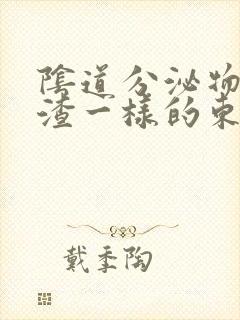 陰道分泌物
渣一樣的東
戴季陶